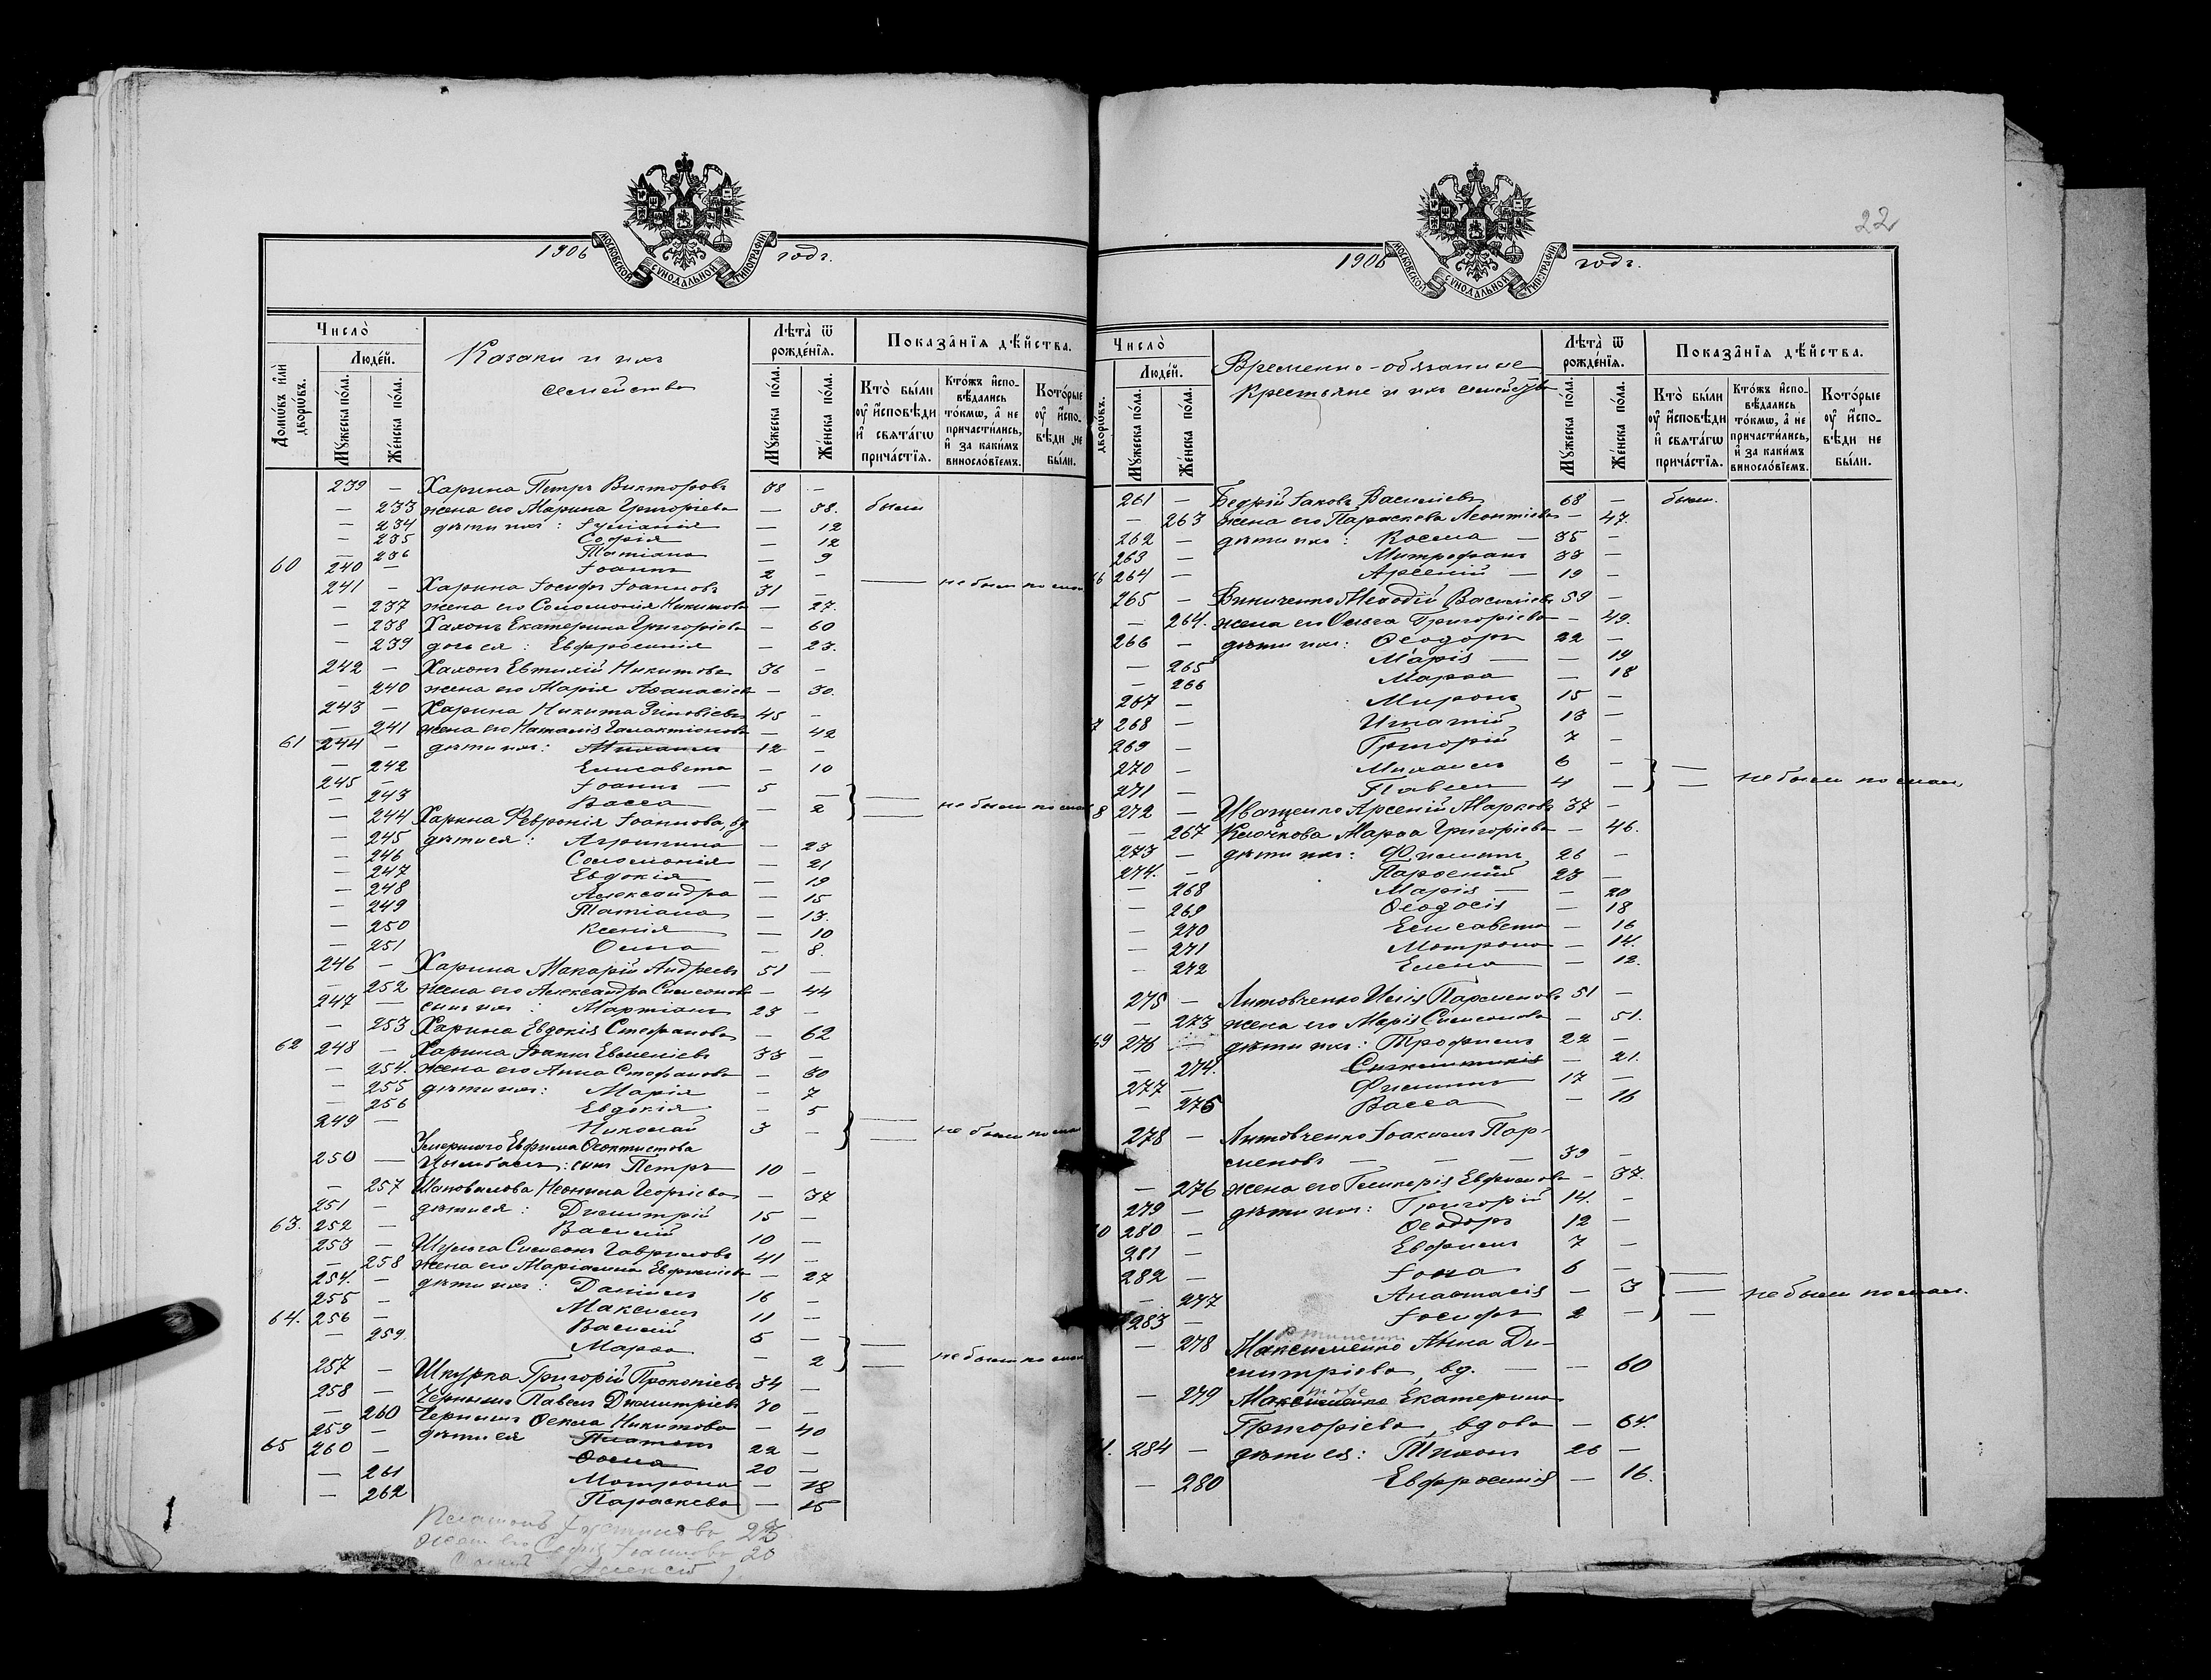 1906 годъ.
МОСКОВСКОЙ СѴНОДАЛЬНОЙ ТИПОГРАФІИ
Число̀
Домѡ́въ и҆лѝ дворѡ́въ.
Люде́й.
Мꙋ́жеска по́ла.
Же́нска по́ла.
Казаки и ихъ
семейства
Лѣ́та ѿ рожде́нїѧ.
Мꙋ́жеска по́ла.
Же́нска по́ла.
Показа̑нїѧ дѣ́йства.
Кто̀ бы́ли ᲂу҆ и҆́сповѣди и҆ свѧта́гѡ прича́стїѧ.
Кто́жъ и҆спо-вѣ́дались то́кмѡ, а҆ не причасти́лись, и҆ за каки́мъ винослові́емъ.
Кото́рые ᲂу҆ и҆́спо-вѣди не бы́ли.
239 — Харина Петръ Викторовъ 38 —
— 233 жена его Марина Григоріева — 38. были
— 234 дѣти ихъ: Іуліанія — 12
— 235 Софія — 12
— 236 Татіана — 9
60 240 — Іоаннъ 2 — — не были по мал
241 — Харина Іосифъ Іоанновъ 31 —
— 237 жена его Соломонія Никитова — 27.
— 238 Халонъ Екатерина Григоріева — 60
— 239 дочь ея: Евфросинія — 23.
242 — Халонъ Евтихій Никитовъ 36 —
— 240 жена его Марія Аѳанасіева — 30.
243 — Харина Никита Зиновіевъ 45 —
— 241 жена его Наталія Галактіонова — 42
61 244 — дѣти ихъ: Михаилъ 12 —
— 242 Елисавета — 10
245 — Іоаннъ — 5 —
— 243 Васса — 2 — не были по мал
— 244 Харина Февронія Іоаннова, вд
— 245 дѣти ея: Агрипина — 23
— 246 Соломонія — 21
— 247 Евдокія — 19
— 248 Александра — 15
— 249 Татіана — 13.
— 250 Ксенія — 10
— 251 Ѳекла — 8.
246 — Харина Макарій Андреевъ 51 —
— 252 жена его Александра Симеонова — 44
247 — сынъ ихъ: Мартіанъ 23 —
— 253 Харина Евдокія Стефанова — 62
62 248 — Харина Іоаннъ Евменіевъ 33 —
— 254. жена его Анна Стефанова — 30
— 255 дѣти ихъ: Марія — 7
— 256 Евдокія — 5
249 — Николай 3 — — не были по мал
Умершаго Евфима Ѳеоктистова
250 — Цымбалъ: сынъ Петръ 10 —
— 257 Шаповалова Неонила Георгіева — 37
251 — дѣти ея: Димитрій 15 —
63. 252 — Василій 10 —
253 — Шульга Симеонъ Гавриловъ 41 —
— 258 жена его Маріамна Евфиміева — 27
254. — дѣти ихъ: Даніилъ 16 —
255 — Максимъ 11 —
64. 256 — Василій 5 —
— 259. Марѳа — 2 — не были по мал
257 — Шкурка Григорій Прокопіевъ 34 —
258 — Чернышъ Павелъ Димитріевъ 70 —
— 260 Чернышъ Ѳекла Никитова — 40
259 — дѣти ея Платонъ 22 —
65 260 — Ѳома 20 —
— 261 Матрона — 18
— 262 Параскева — 15
Платонъ Іустиновъ 23
жена его Софія Іоаннова 20
Алексій 1
22
1906 годъ.
МОСКОВСКОЙ СѴНОДАЛЬНОЙ ТИПОГРАФІИ
Число̀
дворѡ́въ.
Люде́й.
Мꙋ́жеска по́ла.
Же́нска по́ла.
Временно-обязанные
крестьяне и ихъ семейства
Лѣ́та ѿ рожде́нїѧ.
Мꙋ́жеска по́ла.
Же́нска по́ла.
Показа̑нїѧ дѣ́йства.
Кто̀ бы́ли ᲂу҆ и҆́сповѣди и҆ свѧта́гѡ прича́стїѧ.
Кто́жъ и҆спо-вѣ́дались то́кмѡ, а҆ не причасти́лись, и҆ за каки́мъ винослові́емъ.
Кото́рые ᲂу҆ и҆́спо-вѣди не бы́ли.
261 — Бедрій Іаковъ Василіевъ 68 — были.
— 263 жена его Параскева Леонтіева — 47.
262 — дѣти ихъ: Косма — 35 —
263 — Митрофанъ 33 —
66 264 — Арсеній — 19 —
265 — Виниченко Меѳодій Василіевъ 59 —
— 264. жена его Ольга Григоріева — 49.
266 — дѣти ихъ: Ѳеодоръ 22 —
— 265 Марія — — 19
— 266 Марѳа — 18
267 — Миронъ 15 —
7 268 — Игнатій 13 —
269 — Григорій 7 —
270 — Михаилъ 6 —
271 — Павелъ 4 — — не были по мал.
8 272 — Иващенко Арсеній Марковъ 37 —
— 267 Клочкова Марѳа Григоріева — 46.
273 — дѣти ихъ: Филиппъ 26 —
274. — Парѳеній 23 —
— 268 Марія — — 20
— 269 Ѳеодосія — 18
— 270 Елисавета — 16
— 271 Матрона — 14.
— 272 Елена — 12.
275 — Литовченко Илія Парменовъ 51 —
— 273 жена его Марія Симеонова — 51.
69 276 — дѣти ихъ: Трофимъ 22 —
— 274. Синклитикія — 21.
277 — Филиппъ 17 —
— 275 Васса — 16
278 — Литовченко Іоакимъ Пар-
меновъ — — — 39 —
— 276 жена его Гликерія Евфимова — 37.
279 — дѣти ихъ: Григорій 14. —
0 280 — Ѳеодоръ 12 —
281 — Евфимъ 7 —
282 — Іона 6 —
— 277 Анастасія — 3 — не были по мал.
283 — Іосифъ 2 —
— 278 Максименко Анна Ди-
митріева, вд. — — 60
— 279 Максименко Екатерина
Григоріева, вдова — 64.
1. 284 — дѣти ея: Тихонъ 26 —
— 280 Евфросинія — 16.